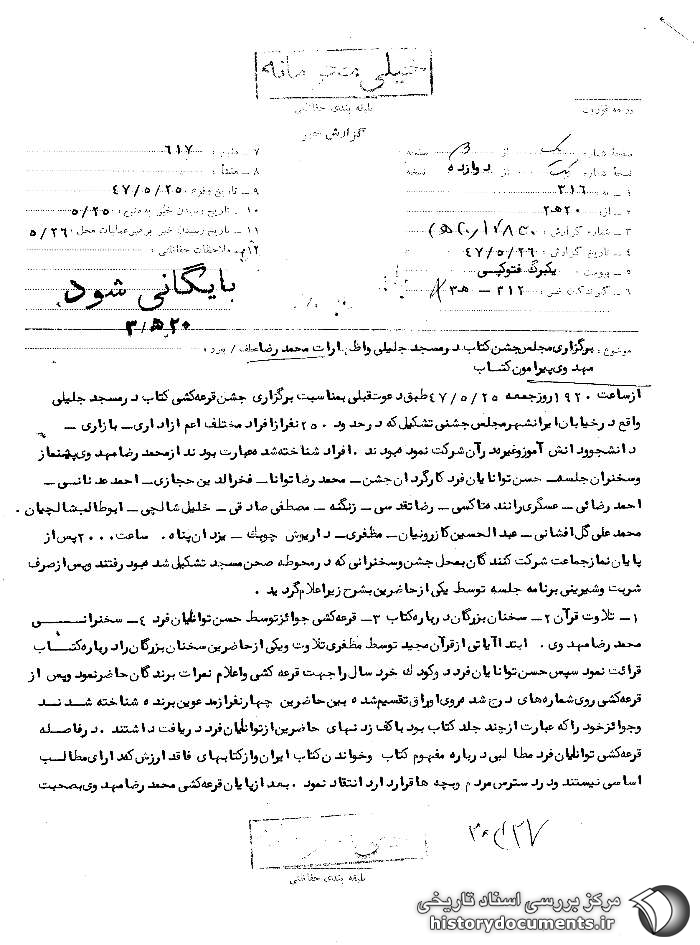 خیلی محرمانه
طبقه بندی حفاظتی
گزارش خبر
صفحه شماره یک از ۳ صفحه
نسخه شماره یک از دوازده نسخه
۱ – به ۳۱۶
۲ – از ۲۰ه۲
۳ – شماره گزارش
۴ – تاریخ گزارش : ۴۷/۵/۲۶
۵ – پیوست : یکبرگ فتوکپی
۶ – گیرندگان خبر ۳۱۲ – ه۳
۷ – منبع : ۶۱۷
۸ – منشأ :
۹ – تاریخ وقوع : ۴۷/۵/۲۵
۱۰ – تاریخ رسیدن خبر به منبع : ۵/۲۵
۱۱ – تاریخ رسیدن خبر به رهبر عملیات محل : ۵/۲۶
۱۲ – ملاحظات حفاظتی :
بایگانی شود
۲۰ه۳
موضوع : برگزاری مجلس جشن کتاب در مسجد جلیلی واظهارات محمد رضا
مهدوی پیرامون کتاب
عطف / پیرو :
ازساعت ۱۹۲۰ روزجمعه ۴۷/۵/۲۵ طبق دعوت قبلی بمناسبت برگزاری جشن قرعه کشی کتاب درمسجد جلیلی
واقع درخیابان ایرانشهرمجلس جشنی تشکیل که درحدود ۲۵۰ نفرازافراد مختلف اعم ازاداری – بازاری –
دانشجوودانش آموزوغیره درآن شرکت نموده بودند . افراد شناخته شده عبارت بودند ازمحمد رضا مهدوی پیشنماز
وسخنران جلسه – حسن توانایان فرد کارگردان جشن – محمد رضا توانا – فخرالدین حجازی – احمد عدنانسی –
احمد رضائی – عسگری راننده تاکسی – رضا تقدسی – زنگنه – مصطفی صادقی – خلیل شالچی – ابوطالب شالچیان .
محمد علی گل افشانی – عبدالحسین کازرونیان – مظفری – داریوش چوبک – یزدان پناه . ساعت ۲۰۰۰ پس از
پایان نمازجماعت شرکت کنندگان بمحل جشن وسخنرانی که درمحوطه صحن مسجد تشکیل شده بود رفتند وپس ازصرف
شربت وشیرینی برنامه جلسه توسط یکی ازحاضرین بشرح زیراعلام گردید .
۱ – تلاوت قرآن ۲ – سخنان بزرگان درباره کتاب ۳ – قرعه کشی جوائز توسط حسن توانایان فرد ۴ – سخنرانی
محمد رضا مهدوی . ابتدا آیاتی ازقرآن مجید توسط مظفری تلاوت ویکی ازحاضرین سخنان بزرگان را درباره کتاب
قرائت نمود سپس حسن توانایان فرد دوکودک خرد سال را جهت قرعه کشی واعلام نمرات برندگان حاضرنمود وپس از
قرعه کشی روی شماره های درج شده روی اوراق تقسیم شده بین حاضرین چهارنفرازمدعوین برنده شناخته شدند
وجوائزخود را که عبارت ازچند جلد کتاب بود با کف زدنهای حاضرین ازتوانایان فرد دریافت داشتند . درفاصله
قرعه کشی توانایان فرد مطالبی درباره مفهوم کتاب وخواندن کتاب ایران وازکتابهای فاقد ارزش که دارای مطالب
اساسی نیستند ودردسترس مردم وبچه ها قراردارد انتقاد نمود . بعد ازپایان قرعه کشی محمد رضا مهدوی بصحبت
طبقه بندی حفاظتی
مرکز بررسی اسناد تاریخی
historydocuments.ir